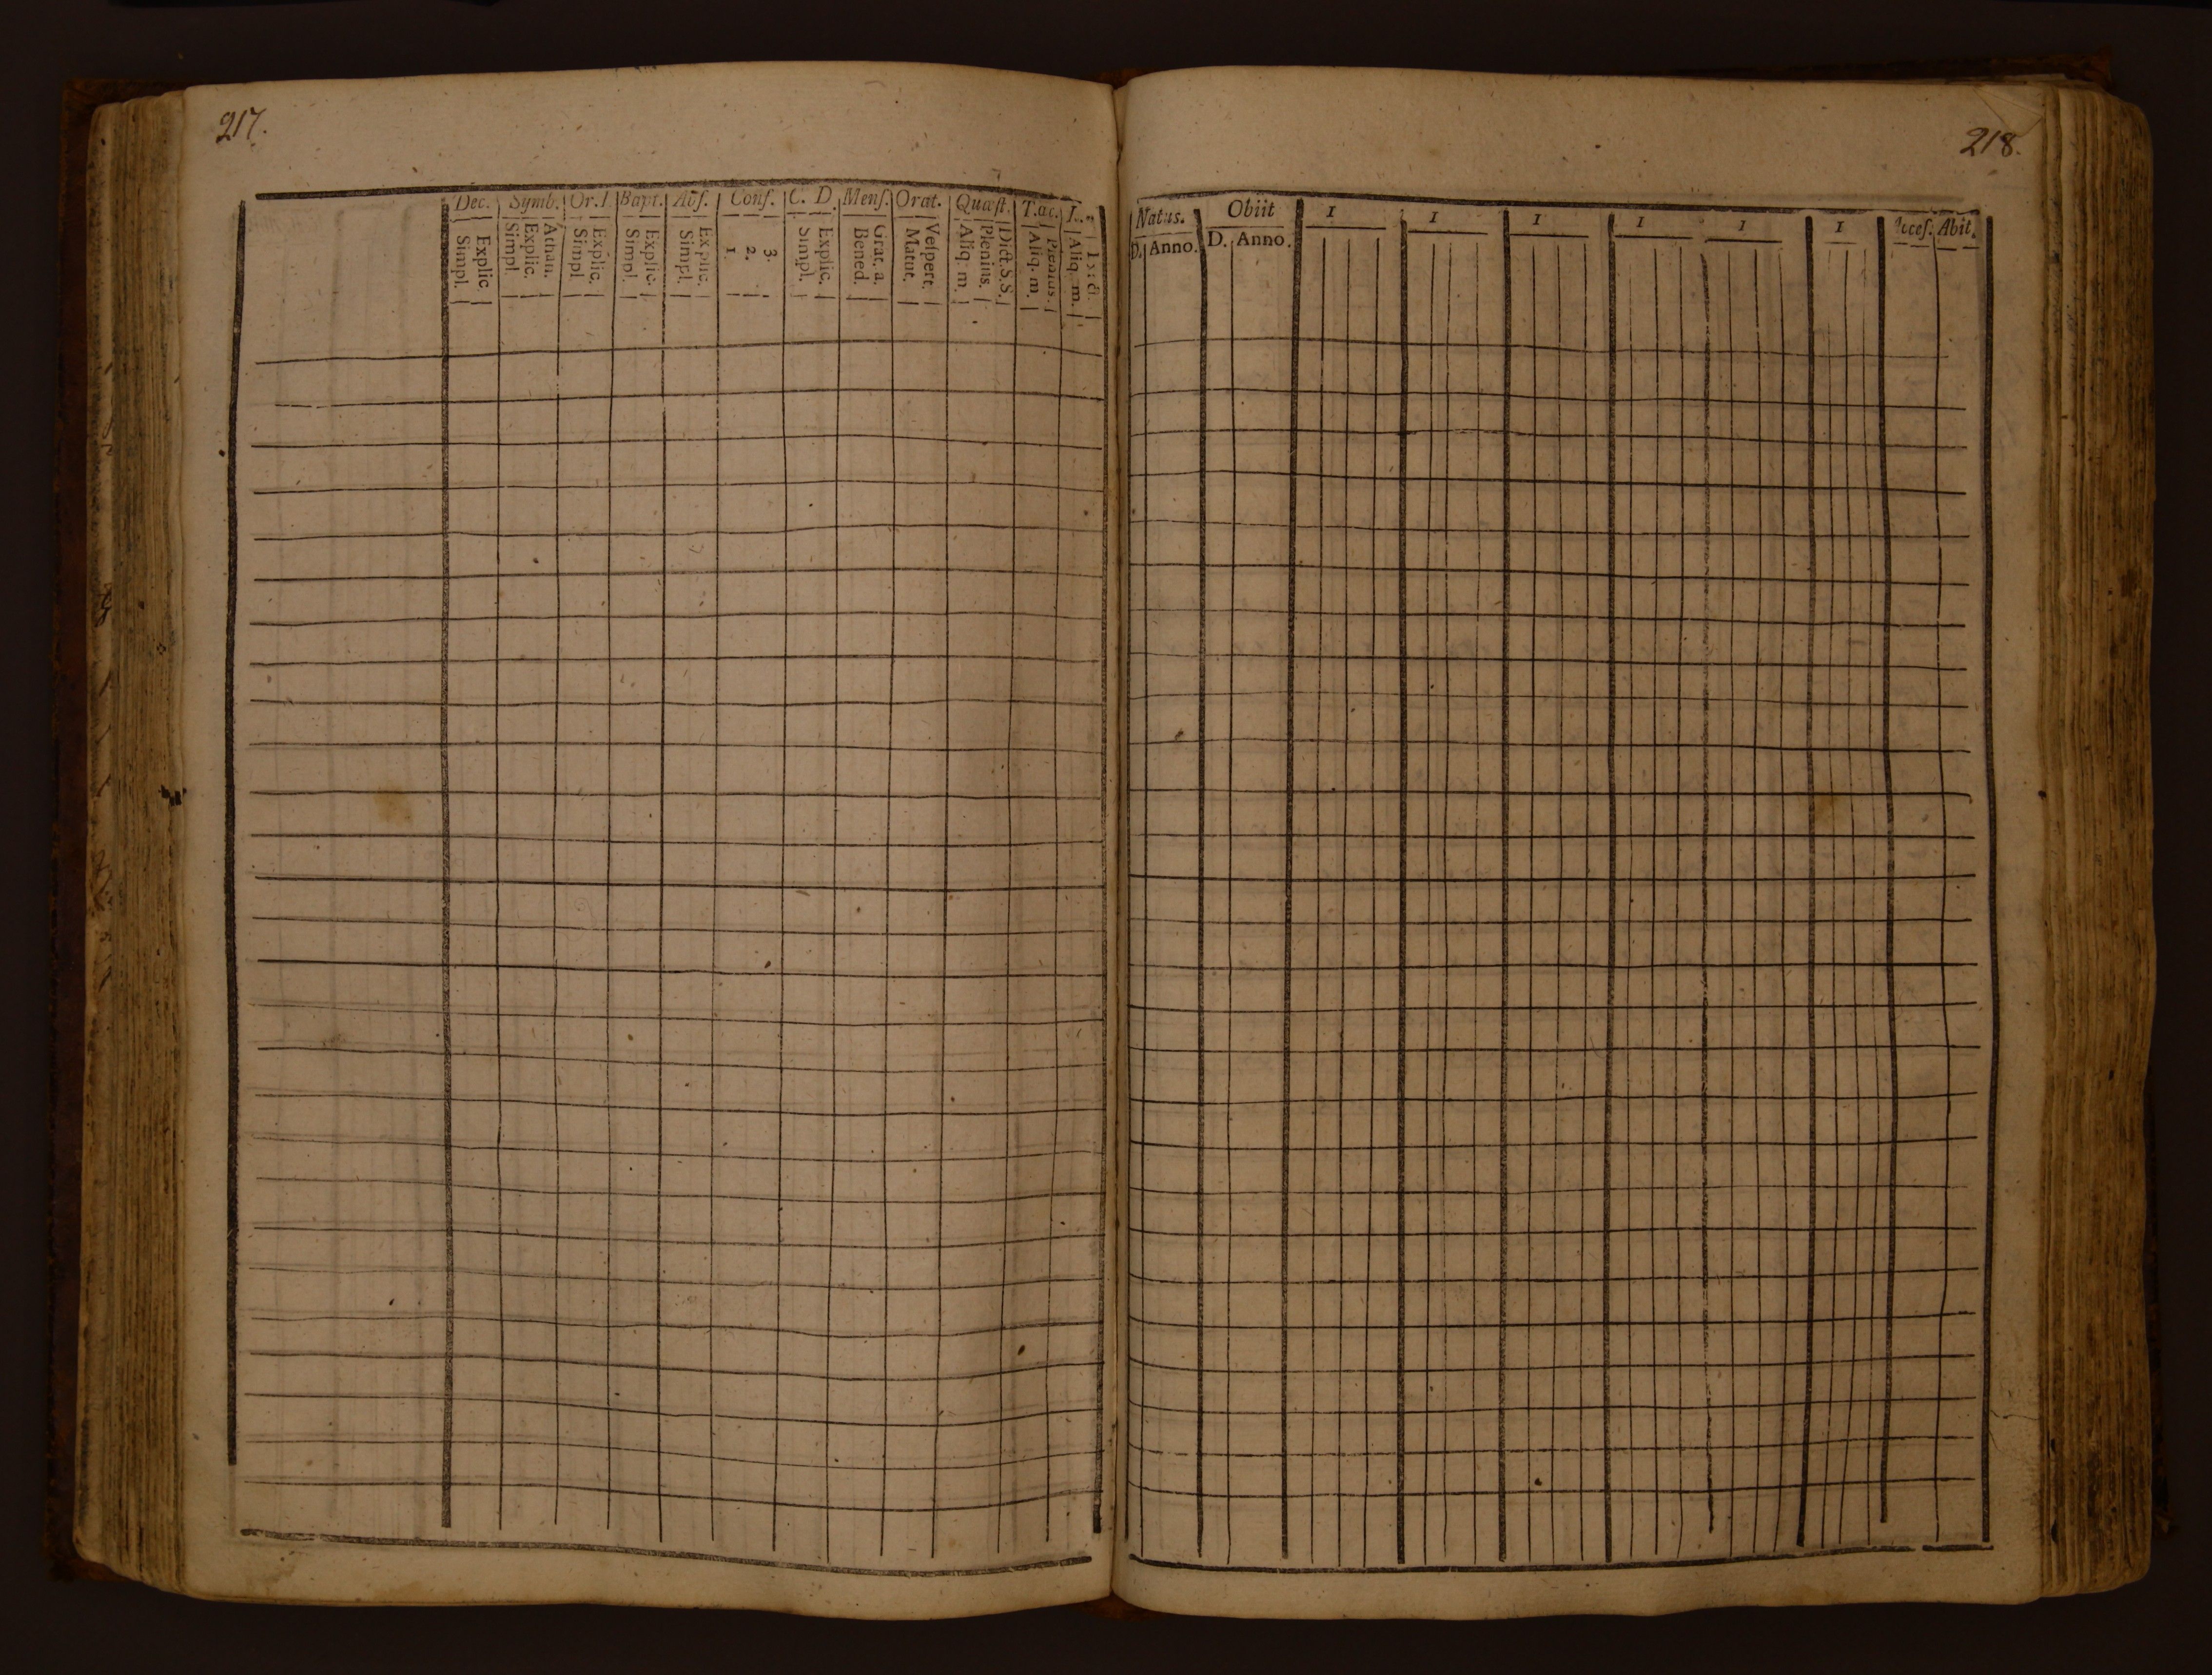 217.
Dec. Symb. Or. Bapt. Abſ. Conf. C. D. Menſ. Orat. Quæſt. T.ac.
Simpl. Explic.
Simpl. Explic. Athan.
Simpl. Explic.
Simpl. Explic.
Simpl. Explic.
1. 2. 3.
Simpl. Explic.
Bened. Grat. a.
Matut. Veſpert.
Aliq. m. Plenius. Dict.S.S.
Aliq. m. Plenius.
Aliq. m.
218.
Natus. Obiit 1 1 1 1 1 1 Abit.
D. Anno. D. Anno.